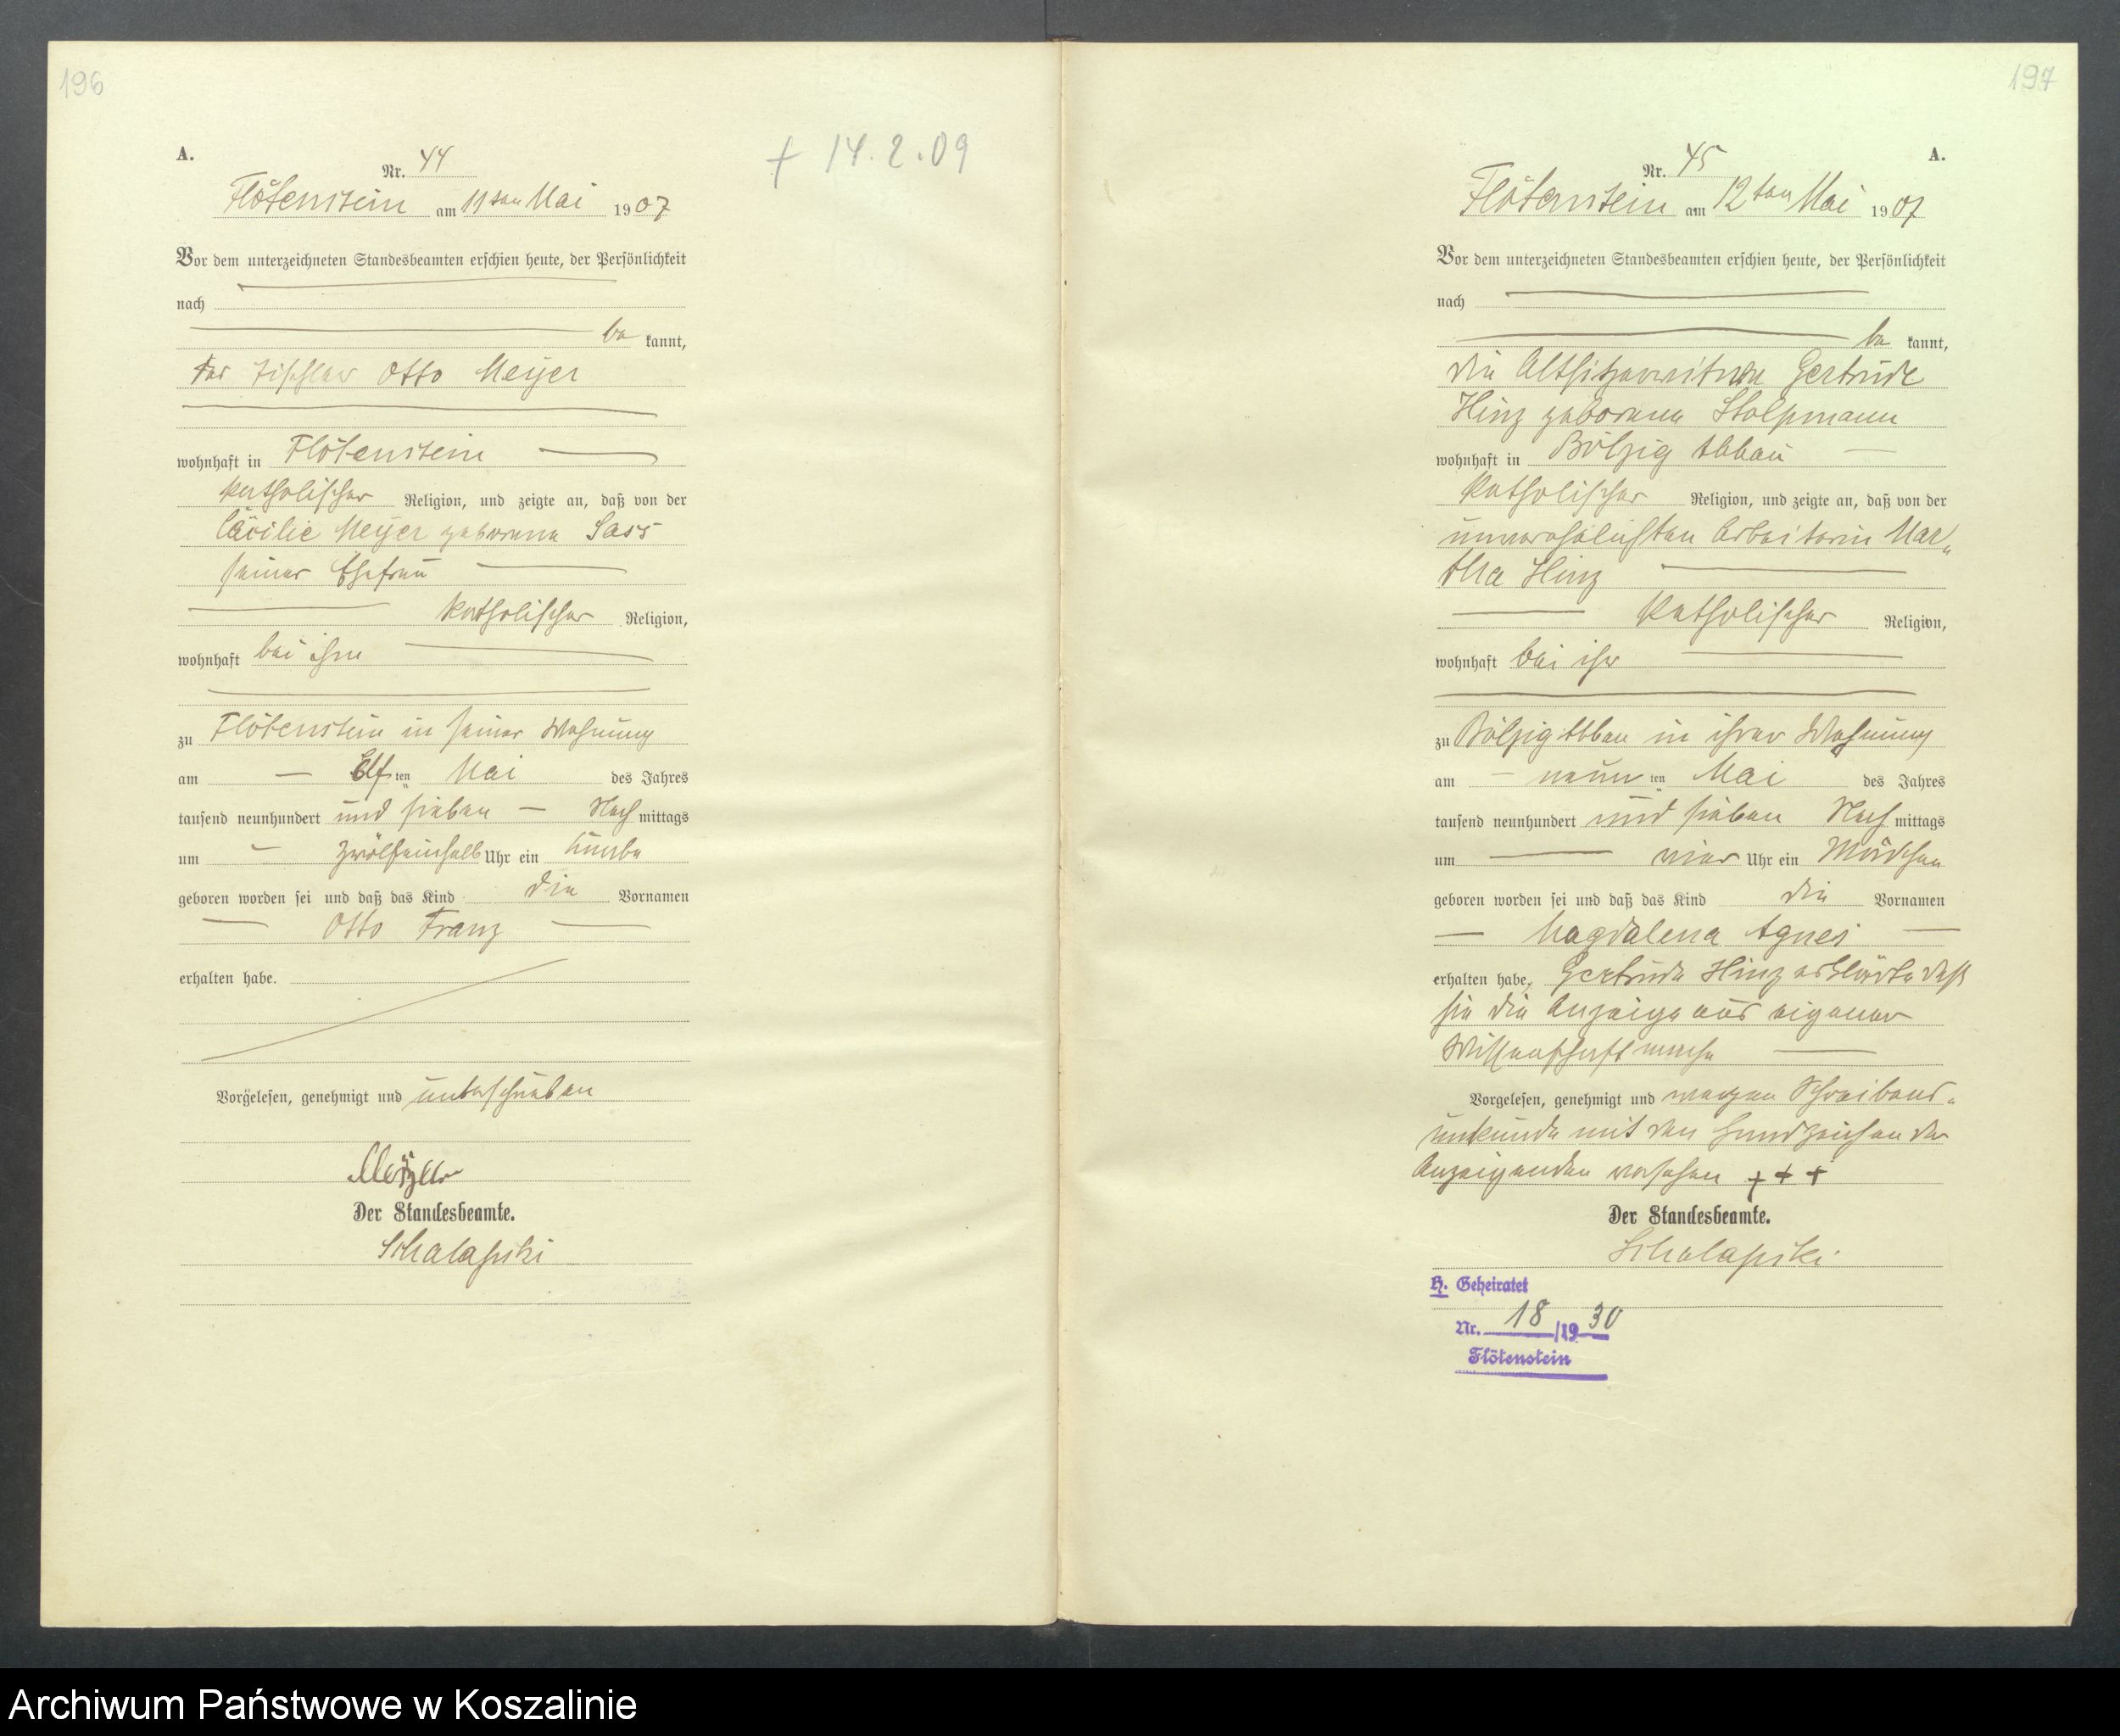 196
A.
Nr. 44
Flötenstein am 11ten Mai 1907
+ 14.2.09
Vor dem unterzeichneten Standesbeamten erschien heute, der Persönlichkeit
nach
be kannt,
der Tischler Otto Meyer
wohnhaft in Flötenstein
katholischer Religion, und zeigte an, daß von der
Cäcilie Meyer geborene Sass
seiner Ehefrau
katholischer Religion,
wohnhaft bei ihm
zu Flötenstein in seiner Wohnung
am Elf ten Mai des Jahres
tausend neunhundert und sieben Nach mittags
um zwölfeinhalb Uhr ein Knabe
geboren worden sei und daß das Kind die Vornamen
Otto Franz
erhalten habe.
Vorgelesen, genehmigt und unterschrieben
Meyer
Der Standesbeamte.
Schalapski
197
A.
Nr. 45
Flötenstein am 12ten Mai 1907
Vor dem unterzeichneten Standesbeamten erschien heute, der Persönlichkeit
nach
be kannt,
die Altsitzerwitwe Gertrude
Hinz geborene Stolpmann
wohnhaft in Bölzig Abbau
katholischer Religion, und zeigte an, daß von der
unverehelichten Arbeiterin Mar„
tha Hinz
katholischer Religion,
wohnhaft bei ihr
zu Bölzig Abbau in ihrer Wohnung
am neun ten Mai des Jahres
tausend neunhundert und sieben Nach mittags
um vier Uhr ein Mädchen
geboren worden sei und daß das Kind die Vornamen
Magdalena Agnes
erhalten habe, Gertrude Hinz erklärte daß
sie die Anzeige aus eigener
Wissenschaft mache
Vorgelesen, genehmigt und wegen Schreibens„
unkunde mit den Handzeichen der
Anzeigenden versehen + + +
Der Standesbeamte.
Schalapski
H. Geheiratet
Nr. 18/1930
Flötenstein
Archiwum Państwowe w Koszalinie